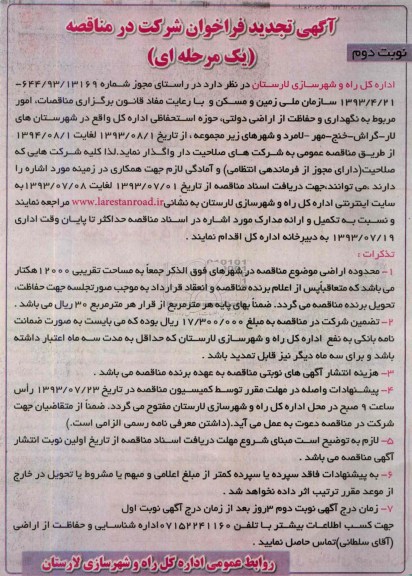 آگهی تجدید فراخوان شرکت در مناقصه
(یک مرحله ای)
نوبت دوم
اداره کل راه و شهرسازی لارستان در نظر دارد در راستای مجوز شماره ۶۴۴/۹۳/۱۳۱۶۹-
۱۳۹۳/۴/۲۱ سازمان ملی زمین و مسکن و با رعایت مفاد قانون برگزاری مناقصات، امور
مربوط به نگهداری و حفاظت از اراضی دولتی، حوزه استحفاظی اداره کل واقع در شهرستان های
لار-گراش-خنج-مهر -لامرد و شهرهای زیر مجموعه ، از تاریخ ۱۳۹۳/۰۸/۱ لغایت ۱۳۹۴/۰۸/۱
از طریق مناقصه عمومی به شرکت های صلاحیت دار واگذار نماید.لذا کلیه شرکت هایی که
صلاحیت(دارای مجوز از فرماندهی انتظامی) و آمادگی لازم جهت همکاری در زمینه مورد اشاره را
دارند .می توانند،جهت دریافت اسناد مناقصه از تاریخ ۱۳۹۳/۰۷/۰۱ لغایت ۱۳۹۳/۰۷/۰۸ به
سایت اینترنتی اداره کل راه و شهرسازی لارستان به نشانی www.larestanroad.ir مراجعه نمایند
و نسبت به تکمیل و ارائه مدارک مورد اشاره در اسناد مناقصه حداکثر تا پایان وقت اداری
۱۳۹۳/۰۷/۱۹ به دبیرخانه اداره کل اقدام نمایند .
تذکرات :
۱- محدوده اراضی موضوع مناقصه در شهرهای فوق الذکر جمعاً به مساحت تقریبی ۱۲۰۰۰هکتار
می باشد که متعاقباپس از اعلام برنده مناقصه و انعقاد قرارداد به موجب صورتجلسه جهت حفاظت،
تحویل برنده مناقصه می گردد. ضمناً بهای پایه هر مترمربع از قرار هر مترمربع ۳۰ ریال می باشد .
۲- تضمین شرکت در مناقصه به مبلغ ۱۷/۳۰۰/۰۰۰ ریال بوده که می بایست به صورت ضمانت
نامه بانکی به نفع اداره کل راه و شهرسازی لارستان که حداقل به مدت سه ماه اعتبار داشته
باشد و برای سه ماه دیگر نیز قابل تمدید باشد .
۳- هزینه انتشار آگهی های نوبتی مناقصه به عهده برنده مناقصه می باشد .
۴- پیشنهادات واصله در مهلت مقرر توسط کمیسیون مناقصه در تاریخ ۱۳۹۳/۰۷/۲۳ رأس
ساعت ۹ صبح در محل اداره کل راه و شهرسازی لارستان مفتوح می گردد. ضمناً از متقاضیان جهت
شرکت در مناقصه دعوت به عمل می آید.(داشتن معرفی نامه رسمی الزامی است.)
۵- لازم به توضیح است مبنای شروع مهلت دریافت اسناد مناقصه از تاریخ اولین نوبت انتشار
آگهی مناقصه می باشد .
۶- به پیشنهادات فاقد سپرده یا سپرده کمتر از مبلغ اعلامی و مبهم یا مشروط یا تحویل در خارج
از موعد مقرر ترتیب اثر داده نخواهد شد .
۷- زمان درج آگهی نوبت دوم ۳روز بعد از زمان درج آگهی نوبت اول
جهت کسب اطلاعات بیشتر با تلفن ۰۷۱۵۲۲۴۱۱۶۰اداره شناسایی و حفاظت از اراضی
(آقای سلطانی)تماس حاصل نمایید .
روابط عمومی اداره کل راه و شهرسازی لارستان